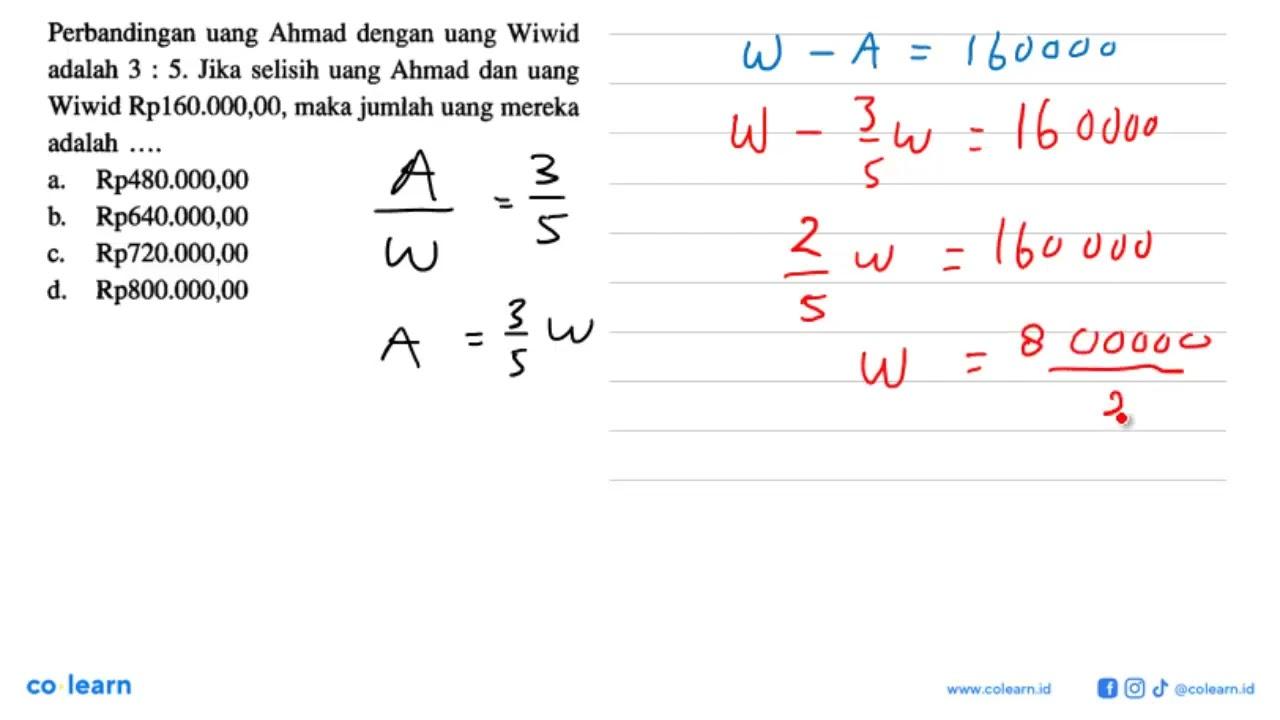 Perbandingan uang Ahmad dengan uang Wiwid
adalah 3 : 5. Jika selisih uang Ahmad dan uang
Wiwid Rp160.000,00, maka jumlah uang mereka
adalah ....
a. Rp480.000,00
b. Rp640.000,00
c. Rp720.000,00
d. Rp800.000,00
A/W = 3/5
A = 3/5 W
W - A = 160000
W - 3/5 W = 160000
2/5 W = 160000
W = 800000/2
co learn
www.colearn.id
@colearn.id